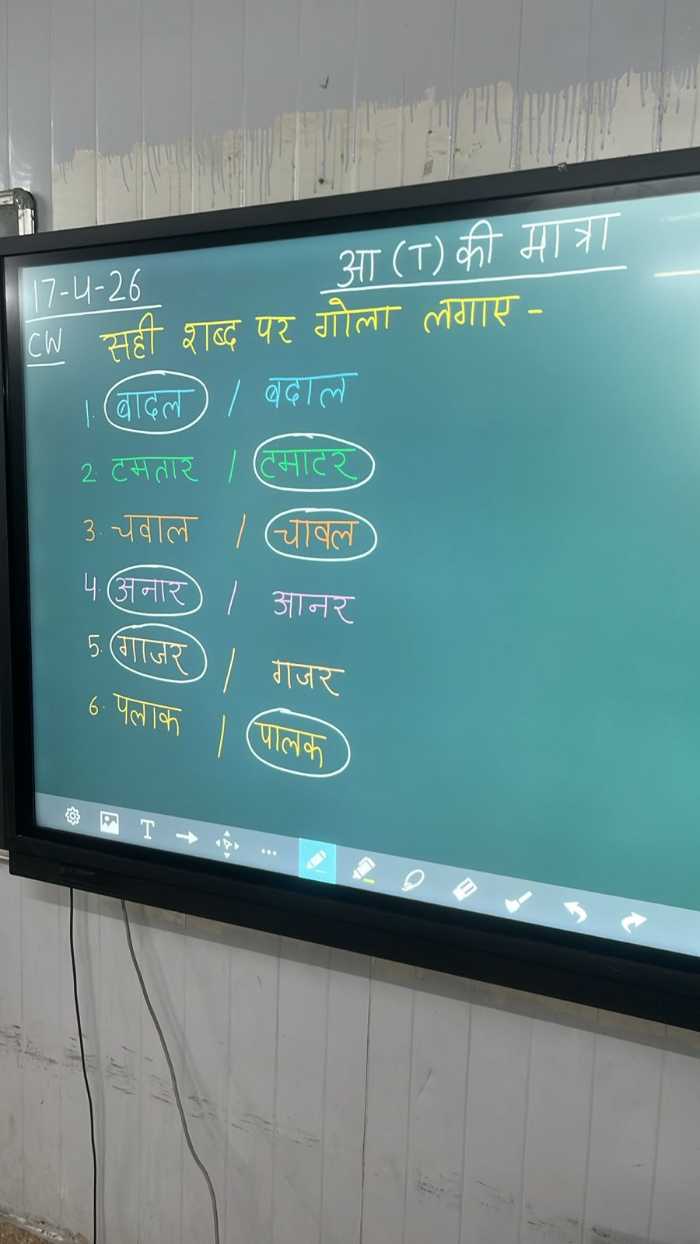 17-4-26
आ (ा) की मात्रा
CW सही शब्द पर गोला लगाए -
1. बादल / बदाल
2. टमतार / टमाटर
3. चवाल / चावल
4. अनार / आनर
5. गाजर / गजर
6. पलाक / पालक
T